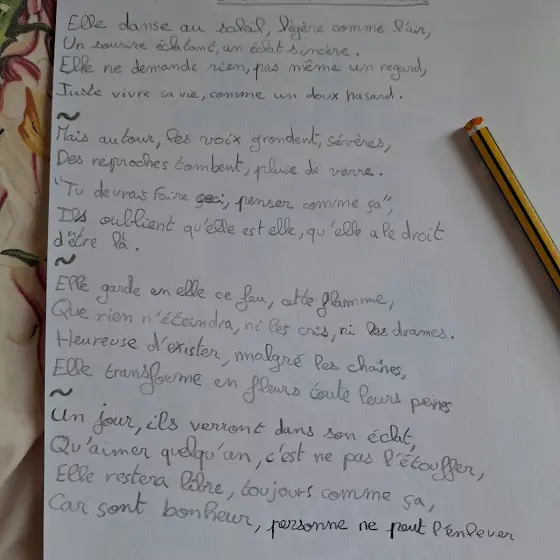 Elle danse au soleil, légère comme l'air,
Un sourire éclatant, un éclat sincère.
Elle ne demande rien, pas même un regard,
Juste vivre sa vie, comme un doux hasard.
~
Mais autour, les voix grondent, sévères,
Des reproches tombent, pluie de verre.
"Tu devrais faire ceci, penser comme ça",
Ils oublient qu'elle est elle, qu'elle a le droit
d'être là.
~
Elle garde en elle ce feu, cette flamme,
Que rien n'éteindra, ni les cris, ni les drames.
Heureuse d'exister, malgré les chaînes,
Elle transforme en fleurs toute leurs peines
~
Un jour, ils verront dans son éclat,
Qu'aimer quelqu'un, c'est ne pas l'étouffer,
Elle restera libre, toujours comme ça,
Car sont bonheur, personne ne peut l'enlever